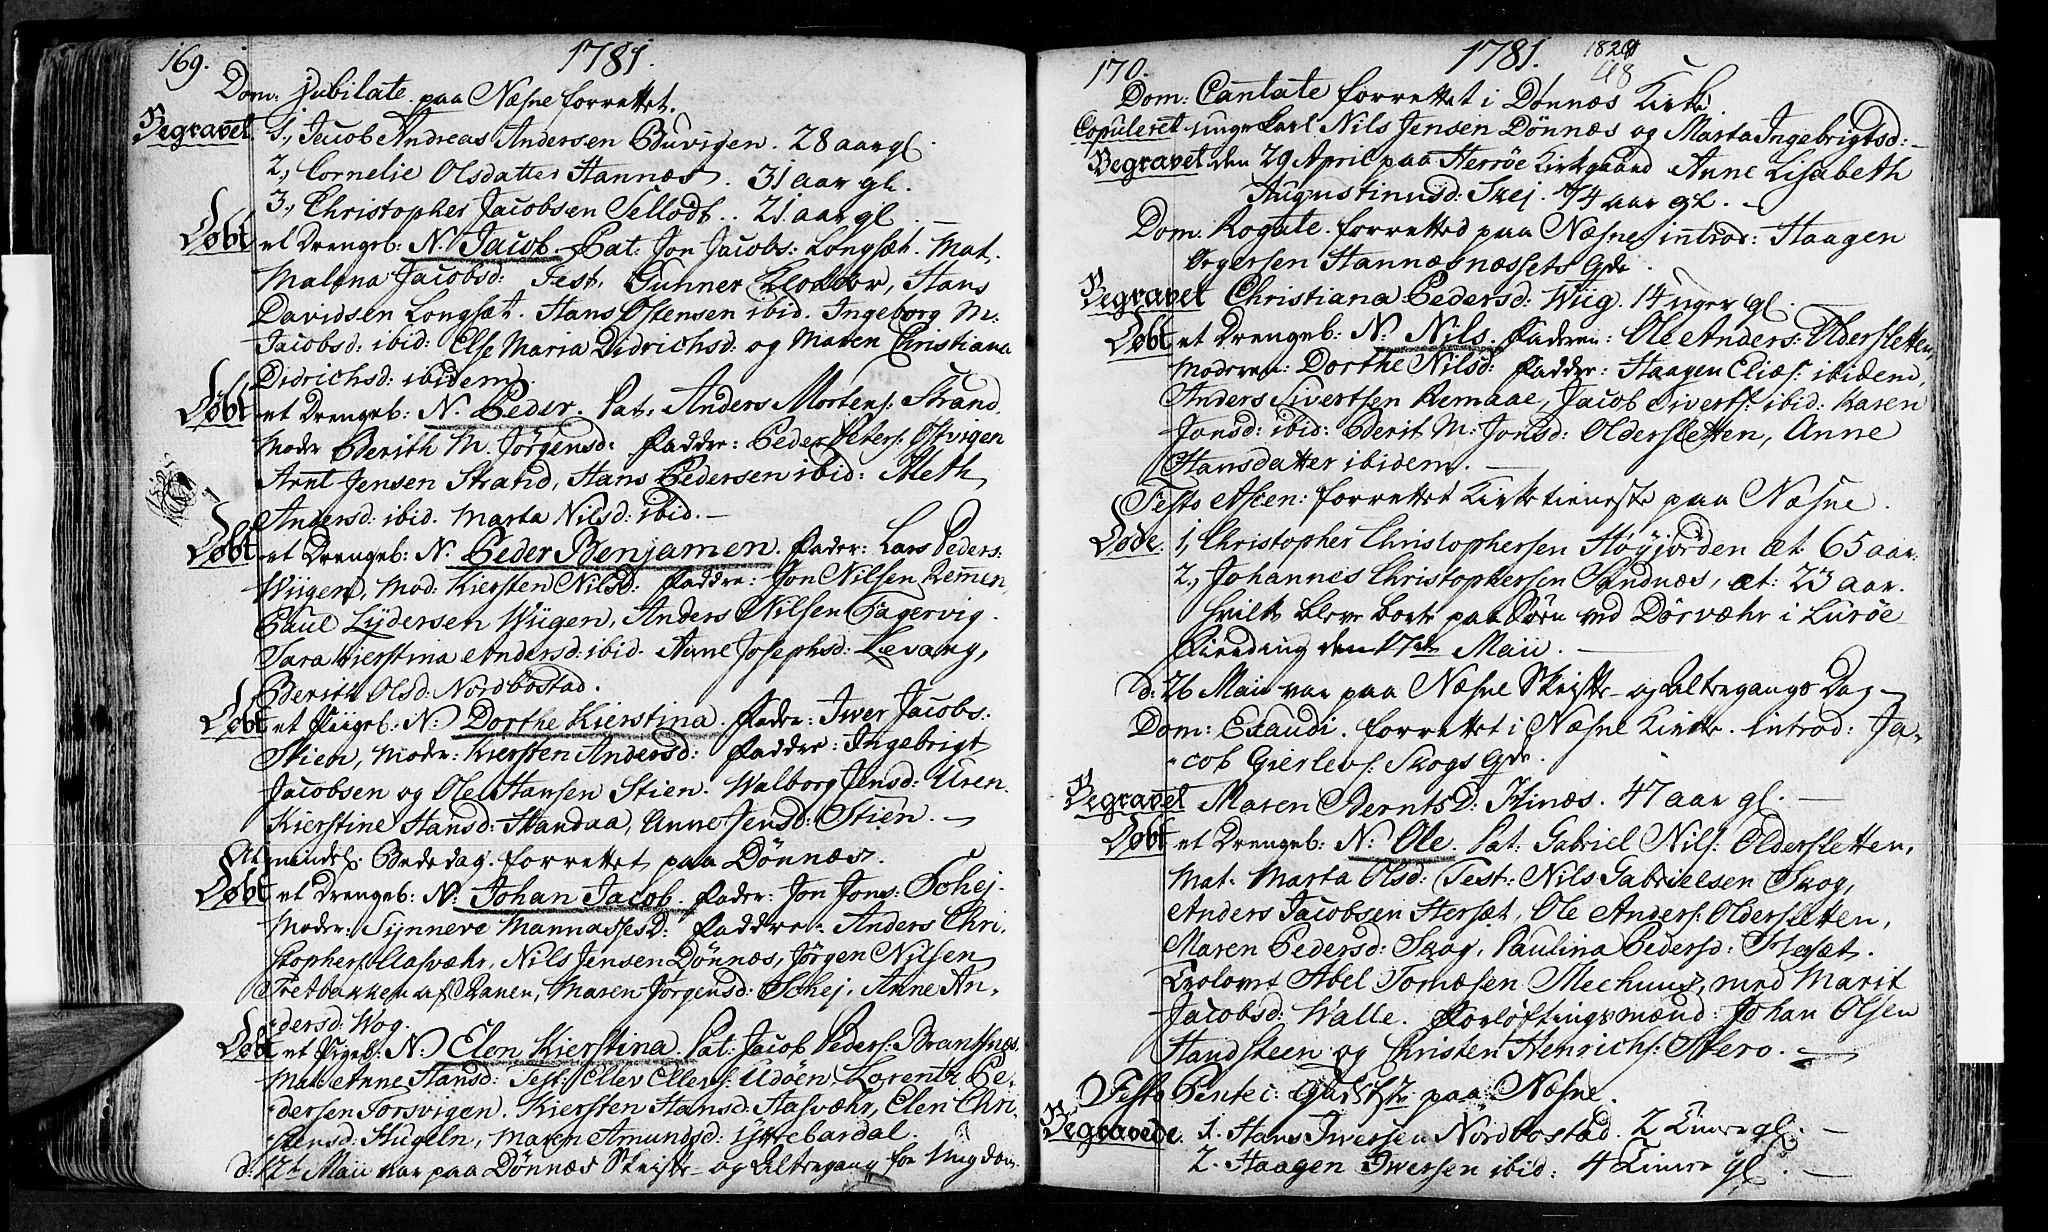 169. 1781.
Dom: Jubilate paa Næsne forrettet.
Begravet. 1., Jacob Andreas Andersen Buvigen. 28 aar gl.
2., Cornelie Olsdatter Hannæs. 31 aar gl.
3., Christopher Jacobsen Sellodt.. 21. aar gl. —
Døbt et Drengeb: N. Jacob. Pat: Jon Jacobs: Longsæt. Mat.
Malena Jacobsd: Test. Gunner Hans
Davidsen Longsæt. Hans Ostensen ibid. Ingeborg M:
Jacobsd: ibid: Else Maria Didrichsd: og Maren Christiana
Didrichsd: ibidem.
Døbt et Drengeb: N. Peder. Pat. Anders Mortens: Strand.
Modr Berith M. Jørgensd: Faddre: Peder Peters: Ostvigen
Arnt Jensen Strand, Hans Pedersen ibid: Meth
Andersd: ibid. Marta Nilsd: ibid. —
Døbt et Drengeb: N. Peder Benjamen. Fader: Lars Peders:
Wiigen, Mod. Kiersten Nilsd: Faddre: Jon Nilsen Remen,
Paul Lydersen Wiigen, Anders Nilsen Fagervig.
Sara Kierstina Andersd: ibid. Anne Josephsd: Levang,
Berith Olsd: Nordbostad.
Døbt et Piigeb: N: Dorthe Kierstina. Fadr: Iwer Jacobs:
Stien, Modr: Kiersten Andersd: Faddre: Ingebrigt
Jacobsen og Ole Hansen Stien. Walborg Jensd: Uren.
Kierstine Hansd: Handaa, Anne Jensd: Stien. —
Almindel: Bededag. forrettet paa Dønnæs.
Døbt et Drengeb: N: Johan Jacob. Fader: Jon Jons: Schej.
Moder: Synneve Mannassesd: Faddre: Anders Chri,
stophers: Aasvæhr, Nils Jensen Dønnæs, Jørgen Nilsen
Fretbakken af Ranen, Maren Jørgensd: Schej. Anne An,
dersd: Wog.
Døbt et Pigeb: N: Elen Kierstina Pat: Jacob Peders: Brantsnæs.
Mat: Anne Hansd: Test: Eller Ellers: Udøen, Lorentz Pe,
dersen Forsvigen. Kiersten Hansd: Aasvæhr, Elen Chri,
stensd: Hugeln, Maren Amundsd: Yttrebardal.
d: 12te Maii var paa Dønnæs Skrifte- og Altergang for Ungdom.
170. 1781. 182
48
Dom: Cantate forrettet i Dønnæs Kirke.
Copuleret unge Karl Nils Jensen Dønnæs og Marta Ingebrigtsd: —
Begravet den 29 April paa Herrøe Kirkgaard Anne Lisabeth
Augustinusd: Skej. 4 aar gl. —
Dom: Rogate. forretted paa Næsne. introd: Haagen
Hannæsnæssets Qde.
Begravet Christiana Pedersd: Wiig. 14 uger gl. —
Døbt et Drengeb: N: Nils. Faderen: Ole Anders: Oldersletten,
Moderen: Dorthe Nilsd: Faddre: Haagen Elias: ibidem,
Anders Sivertsen Remaae, Jacob Siverts: ibid: Karen
Jonsd: ibid: Berit M: Jonsd: Oldersletten, Anne
Hansdatter ibidem. —
Festo Ascen: forrettet Kirketieneste paa Næsne.
Døde. 1, Christopher Christophersen Høyjorden æt. 65 aar.
2., Johannes Christophersen Sandnæs, æt: 23 aar.
hvilke bleve borte paa Søen ved Dørvæhr i Lurøe
Tinding den 17de Maii. —
d: 26 Maii var paa Næsne Skrifte- og Altergangs Dag —
Dom: Exaudi. forrettet i Næsne Kirke. introd: Ja,
cob Gierlevs: Skogs Qde.
Begravet Maren Berntsd: Zinæs. 47 aar gl. —
Døbt et Drengeb: N: Ole. Pat: Gabriel Nils: Oldersletten,
Mat: Marta Olsd: Test: Nils Gabrielsen Skog,
Anders Jacobsen Hersæt, Ole Anders: Oldersletten,
Maren Pedersd: Skog, Paulina Pedersd:
Trolovet Abel Tomæsen Mechuus, med Marit
Jacobsd: Walle. Forløftingsmænd: Johan Olsen
Handsteen og Christen Henrichs: Thero. —
Festo Pentec: paa Næsne.
Begravede. 1. Hans Iwersen Nordbostad. 2 Timer gl. —
2. Haagen Iwersen ibid: 4 Timer gl. —